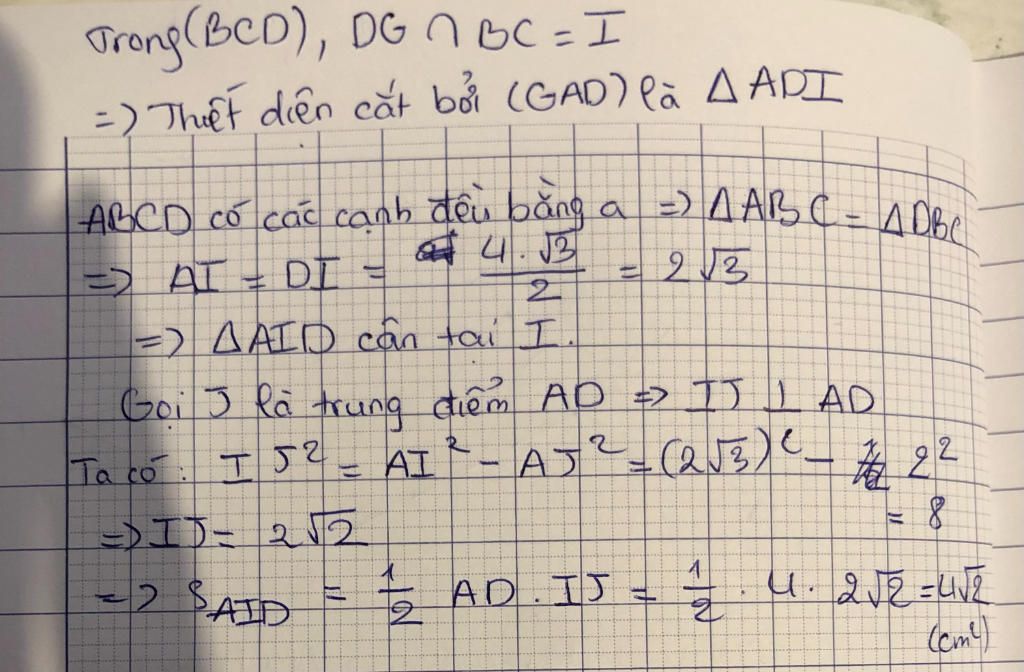 Trong (BCD), DG ∩ BC = I
=> Thiết diện cắt bởi (GAD) là Δ ADI
ABCD có các cạnh đều bằng a => ΔABC = ΔDBC
=> AI = DI = 4.√3/2 = 2√3
=> ΔAID cân tại I.
Gọi J là trung điểm AD => IJ ⊥ AD
Ta có: IJ² = AI² - AJ² = (2√3)² - 2²
= 8
=> IJ = 2√2
=> S_AID = 1/2 AD . IJ = 1/2 . 4 . 2√2 = 4√2
(cm²)